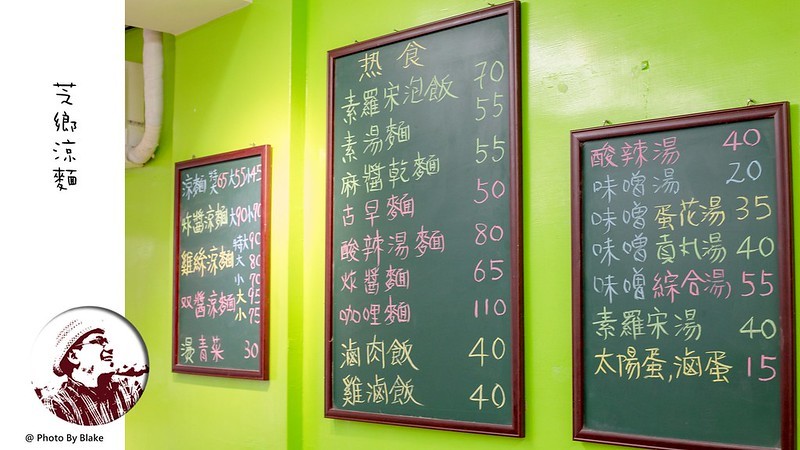 芝鄉涼麵
涼麵 特大65大55小45
炸醬涼麵大90小70
雞絲涼麵 特大90
大 80
小 70
双醬涼麵 大95
小75
燙青菜 30
热食
素羅宋泡飯 70
素湯麵 55
麻醬乾麵 55
古早麵 50
酸辣湯麵 80
炸醬麵 65
咖哩麵 110
滷肉飯 40
雞滷飯 40
酸辣湯 40
味噌湯 20
味噌蛋花湯 35
味噌貢丸湯 40
味噌綜合湯 55
素羅宋湯 40
太陽蛋,滷蛋 15
@ Photo By Blake